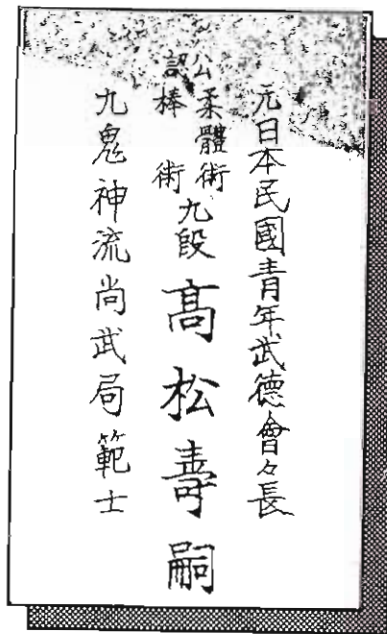 元日本民國青年武德會々長
公認 柔體術 棒術 九段 髙松壽嗣
九鬼神流尚武局範士